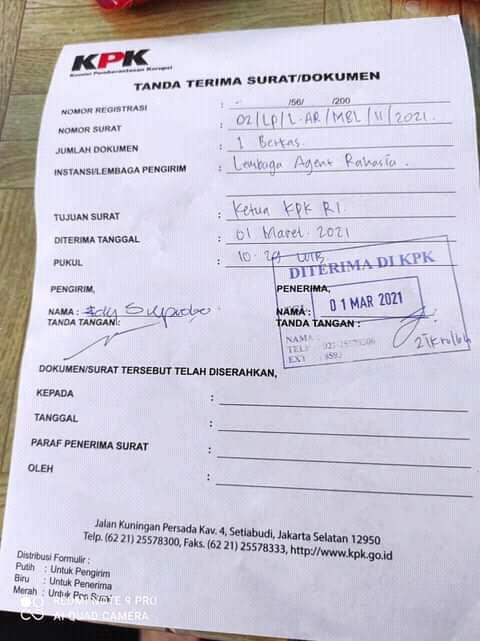 KPK
Komisi Pemberantasan Korupsi
TANDA TERIMA SURAT/DOKUMEN
NOMOR REGISTRASI : - /56/ /200
NOMOR SURAT : 02/LP/L-AR/MEL/II/2021.
JUMLAH DOKUMEN : 1 Berkas.
INSTANSI/LEMBAGA PENGIRIM : Lembaga Agent Rahasia.
TUJUAN SURAT : Ketua KPK RI.
DITERIMA TANGGAL : 01 Maret 2021
PUKUL : 10. WIB
DITERIMA DI KPK
PENGIRIM, PENERIMA,
01 MAR 2021
NAMA : NAMA :
TANDA TANGAN : TANDA TANGAN :
NAMA :
TELP : 021-25578300
EXT :
DOKUMEN/SURAT TERSEBUT TELAH DISERAHKAN,
KEPADA :
TANGGAL :
PARAF PENERIMA SURAT :
OLEH :
Jalan Kuningan Persada Kav. 4, Setiabudi, Jakarta Selatan 12950
Telp. (62 21) 25578300, Faks. (62 21) 25578333, http://www.kpk.go.id
Distribusi Formulir :
Putih : Untuk Pengirim
Biru : Untuk Penerima
Merah : Untuk Pos Surat
REDMI NOTE 9 PRO
AI QUAD CAMERA